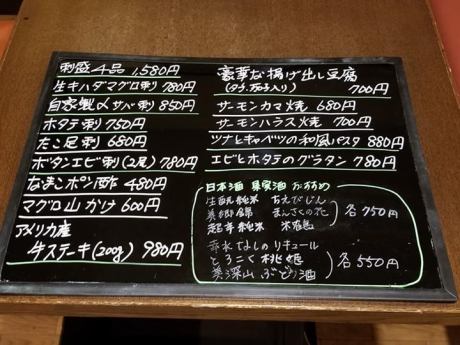 刺盛4品 1,580円
生キハダマグロ刺 780円
自家製〆サバ刺 850円
ホタテ刺 750円
たこ足刺 680円
ボタンエビ刺(2尾) 780円
なまこポン酢 480円
マグロ山かけ 600円
アメリカ産
牛ステーキ(200g) 980円
豪華な揚げ出し豆腐
700円
サーモンカマ焼 680円
サーモンハラス焼 700円
ツナとキャベツの和風パスタ 880円
エビとホタテのグラタン 780円
日本酒 果実酒 おすすめ
生酛純米
美郷錦 まんさくの花
超辛純米
各750円
なしのリキュール
とろこく桃姫
美深山ぶどう酒
各550円